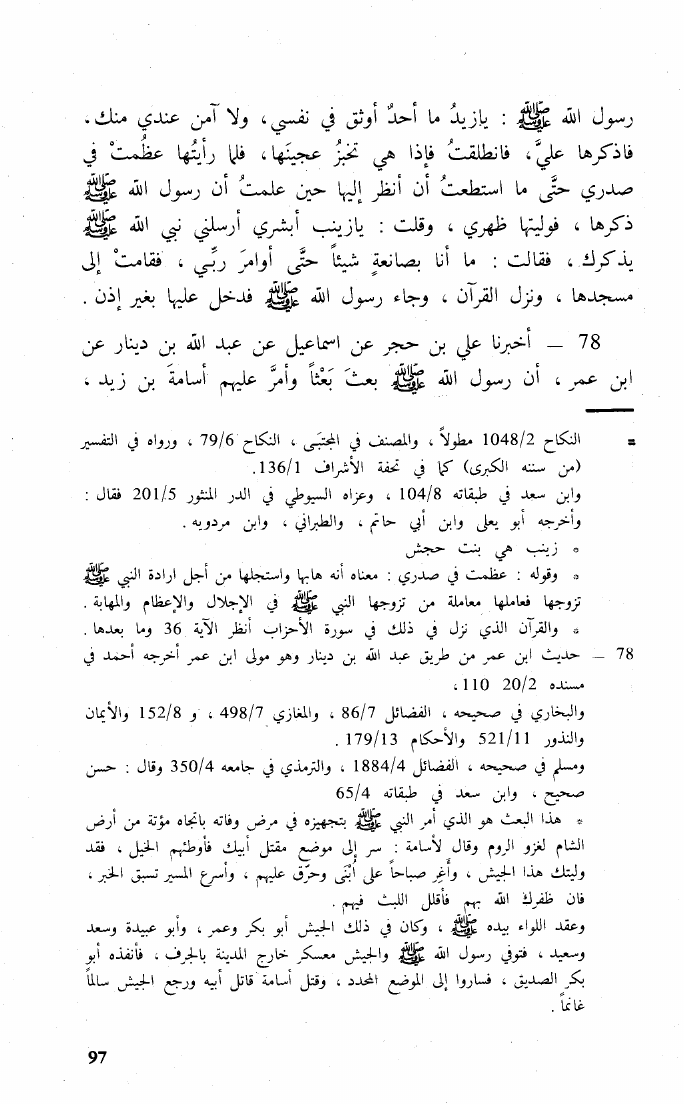 رسول الله ﷺ : يازيدُ ما أحدٌ أوثق في نفسي، ولا آمن عندي منك.
فاذكرها عليَّ، فانطلقتُ فإذا هي تخبزُ عجينَها، فلما رأيتُها عظُمتْ في
صدري حتَّى ما استطعتُ أن أنظر إليها حين علمتُ أن رسول الله ﷺ
ذكرها ، فوليتها ظهري ، وقلت : يازينب أبشري أرسلني نبي الله ﷺ
يذكرك ، فقالت : ما أنا بصانعةٍ شيئاً حتَّى أوامرَ ربِّي ، فقامتْ إلى
مسجدها ، ونزل القرآن ، وجاء رسول الله ﷺ فدخل عليها بغير إذن .
78 ــ أخبرنا علي بن حجر عن اسماعيل عن عبد الله بن دينار عن
ابن عمر ، أن رسول الله ﷺ بعثَ بَعْثاً وأمَّر عليهم أسامةَ بن زيد ،
= النكاح 1048/2 مطولاً ، والمصنف في المجتبَى ، النكاح 79/6 ، ورواه في التفسير
(من سننه الكبرى) كما في تحفة الأشراف 136/1.
وابن سعد في طبقاته 104/8 ، وعزاه السيوطي في الدر المنثور 201/5 فقال :
وأخرجه أبو يعلى وابن أبي حاتم ، والطبراني ، وابن مردويه .
* زينب هي بنت حجش
* وقوله : عظمت في صدري : معناه أنه هابها واستجلها من أجل ارادة النبي ﷺ
تزوجها فعاملها معاملة من تزوجها النبي ﷺ في الإجلال والإعظام والمهابة .
* والقرآن الذي نزل في ذلك في سورة الأحزاب أنظر الآية 36 وما بعدها .
78 ــ حديث ابن عمر من طريق عبد الله بن دينار وهو مولى ابن عمر أخرجه أحمد في
مسنده 20/2 110 ،
والبخاري في صحيحه ، الفضائل 86/7 ، والمغازي 498/7 ، و 152/8 والأيمان
والنذور 521/11 والأحكام 179/13 .
ومسلم في صحيحه ، الفضائل 1884/4 ، والترمذي في جامعه 350/4 وقال : حسن
صحيح ، وابن سعد في طبقاته 65/4
* هذا البعث هو الذي أمر النبي ﷺ بتجهيزه في مرض وفاته باتجاه مؤتة من أرض
الشام لغزو الروم وقال لأسامة : سر إلى موضع مقتل أبيك فأوطئهم الخيل ، فقد
وليتك هذا الجيش ، وأغر صباحاً على أُبْنَى وحرّق عليهم ، وأسرع المسير تسبق الخبر ،
فان ظفرك الله بهم فأقلل اللبث فيهم .
وعقد اللواء بيده ﷺ ، وكان في ذلك الجيش أبو بكر وعمر ، وأبو عبيدة وسعد
وسعيد ، فتوفي رسول الله ﷺ والجيش معسكر خارج المدينة بالجرف ، فأنفذه أبو
بكر الصديق ، فساروا إلى الموضع المحدد ، وقتل أسامة قاتل أبيه ورجع الجيش سالماً
غانماً .
97